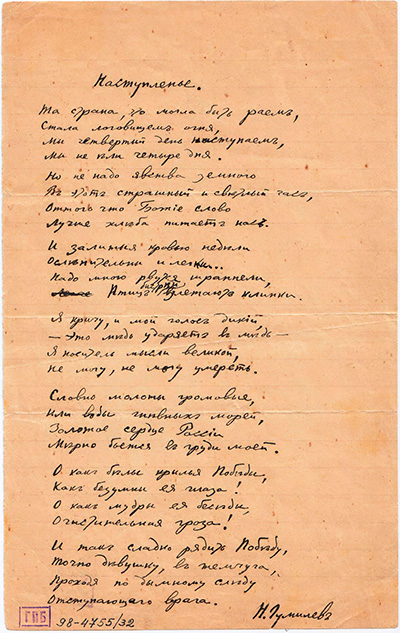 Наступленье.
Та страна, что могла быть раемъ,
Стала логовищемъ огня,
Мы четвертый день наступаемъ,
Мы не ѣли четыре дня.
Но не надо явства земного
Въ этотъ страшный и свѣтлый часъ,
Оттого что Божіе слово
Лучше хлѣба питаетъ насъ.
И залитыя кровью недѣли
Ослѣпительны и легки..
Надо мною рвутся шрапнели,
Птицъ быстрѣй взлетаютъ клинки.
Я кричу, и мой голосъ дикій
— Это мѣдь ударяетъ въ мѣдь —
Я носитель мысли великой,
Не могу, не могу умереть.
Словно молоты громовые,
Или воды гнѣвныхъ морей,
Золотое сердце Россіи
Мѣрно бьется въ груди моей.
О какъ бѣлы крылья Побѣды,
Какъ безумны ея глаза!
О какъ мудры ея бесѣды,
Очистительная гроза!
И такъ сладко рядить Побѣду,
Точно дѣвушку, въ жемчуга,
Проходя по дымному слѣду
Отступающаго врага.
Н. Гумилевъ
ГПБ
98-4755/32